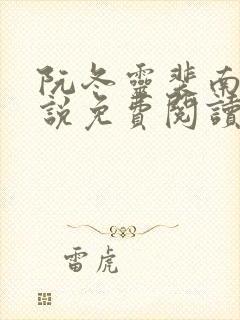 阮冬靈裴南
說免費閱讀
雷虎